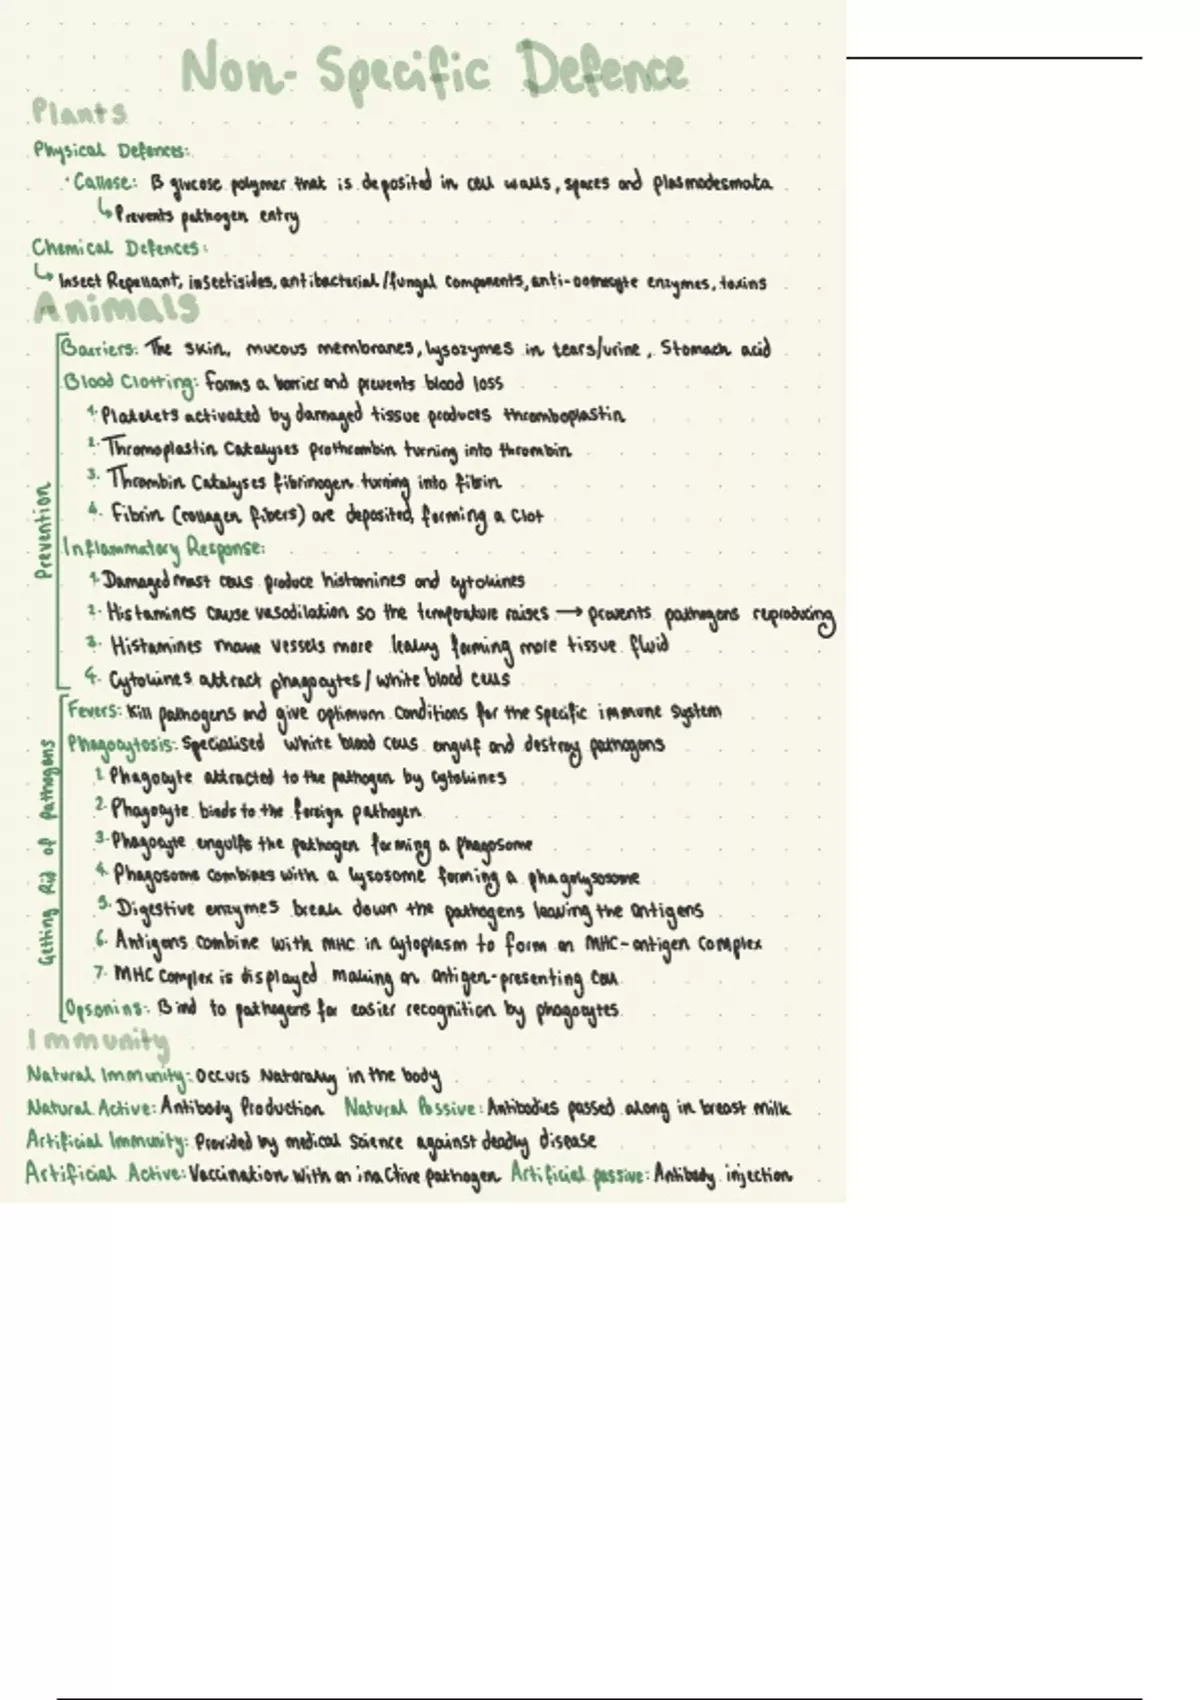 Non-Specific Defence
Plants
Physical Defences:
· Callose: B glucose polymer that is deposited in cell walls, spaces and plasmodesmata
↳ Prevents pathogen entry
Chemical Defences:
↳ Insect Repellant, insectisides, antibacterial/fungal components, anti-oomocyte enzymes, toxins
Animals
Prevention
Barriers: The skin, mucous membranes, lysozymes in tears/urine, Stomach acid
Blood Clotting: forms a barrier and prevents blood loss
1. Platelets activated by damaged tissue produces thromboplastin
2. Thromoplastin Catalyses prothrombin turning into thrombin
3. Thrombin Catalyses fibrinogen turning into fibrin
4. Fibrin (collagen fibers) are deposited, forming a Clot
Inflammatory Response:
1. Damaged mast cells produce histamines and cytokines
2. Histamines cause vasodilation so the temperature raises → prevents pathogens reproducing
3. Histamines make vessels more leaky forming more tissue fluid
4. Cytokines attract phagocytes / white blood cells
Getting Rid of Pathogens
Fevers: Kill pathogens and give optimum conditions for the specific immune system
Phagocytosis: Specialised white blood cells engulf and destroy pathogens
1. Phagocyte attracted to the pathogen by Cytokines
2. Phagocyte binds to the foreign pathogen
3. Phagocyte engulfs the pathogen forming a phagosome
4. Phagosome combines with a lysosome forming a phagolysosome
5. Digestive enzymes break down the pathogens leaving the antigens
6. Antigens combine with MHC in cytoplasm to form an MHC-antigen Complex
7. MHC Complex is displayed making an antigen-presenting Cell
Opsonins: Bind to pathogens for easier recognition by phagocytes
Immunity
Natural Immunity: Occurs Naturally in the body
Natural Active: Antibody Production Natural Passive: Antibodies passed along in breast milk
Artificial Immunity: Provided by medical Science against deadly disease
Artificial Active: Vaccination with an inactive pathogen Artificial passive: Antibody injection